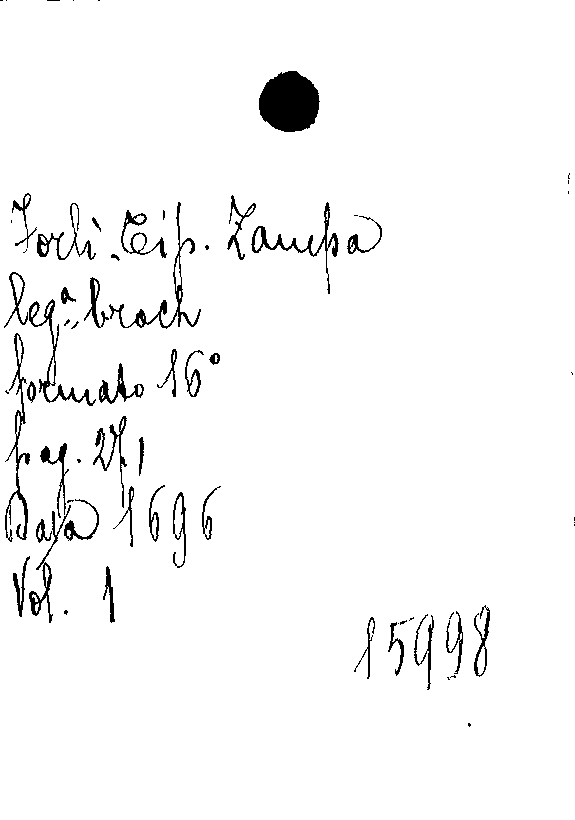 Forlì. Tip. Zampa
legª. broch
formato 16°
pag. 271
Data 1696
Vol. 1
15998